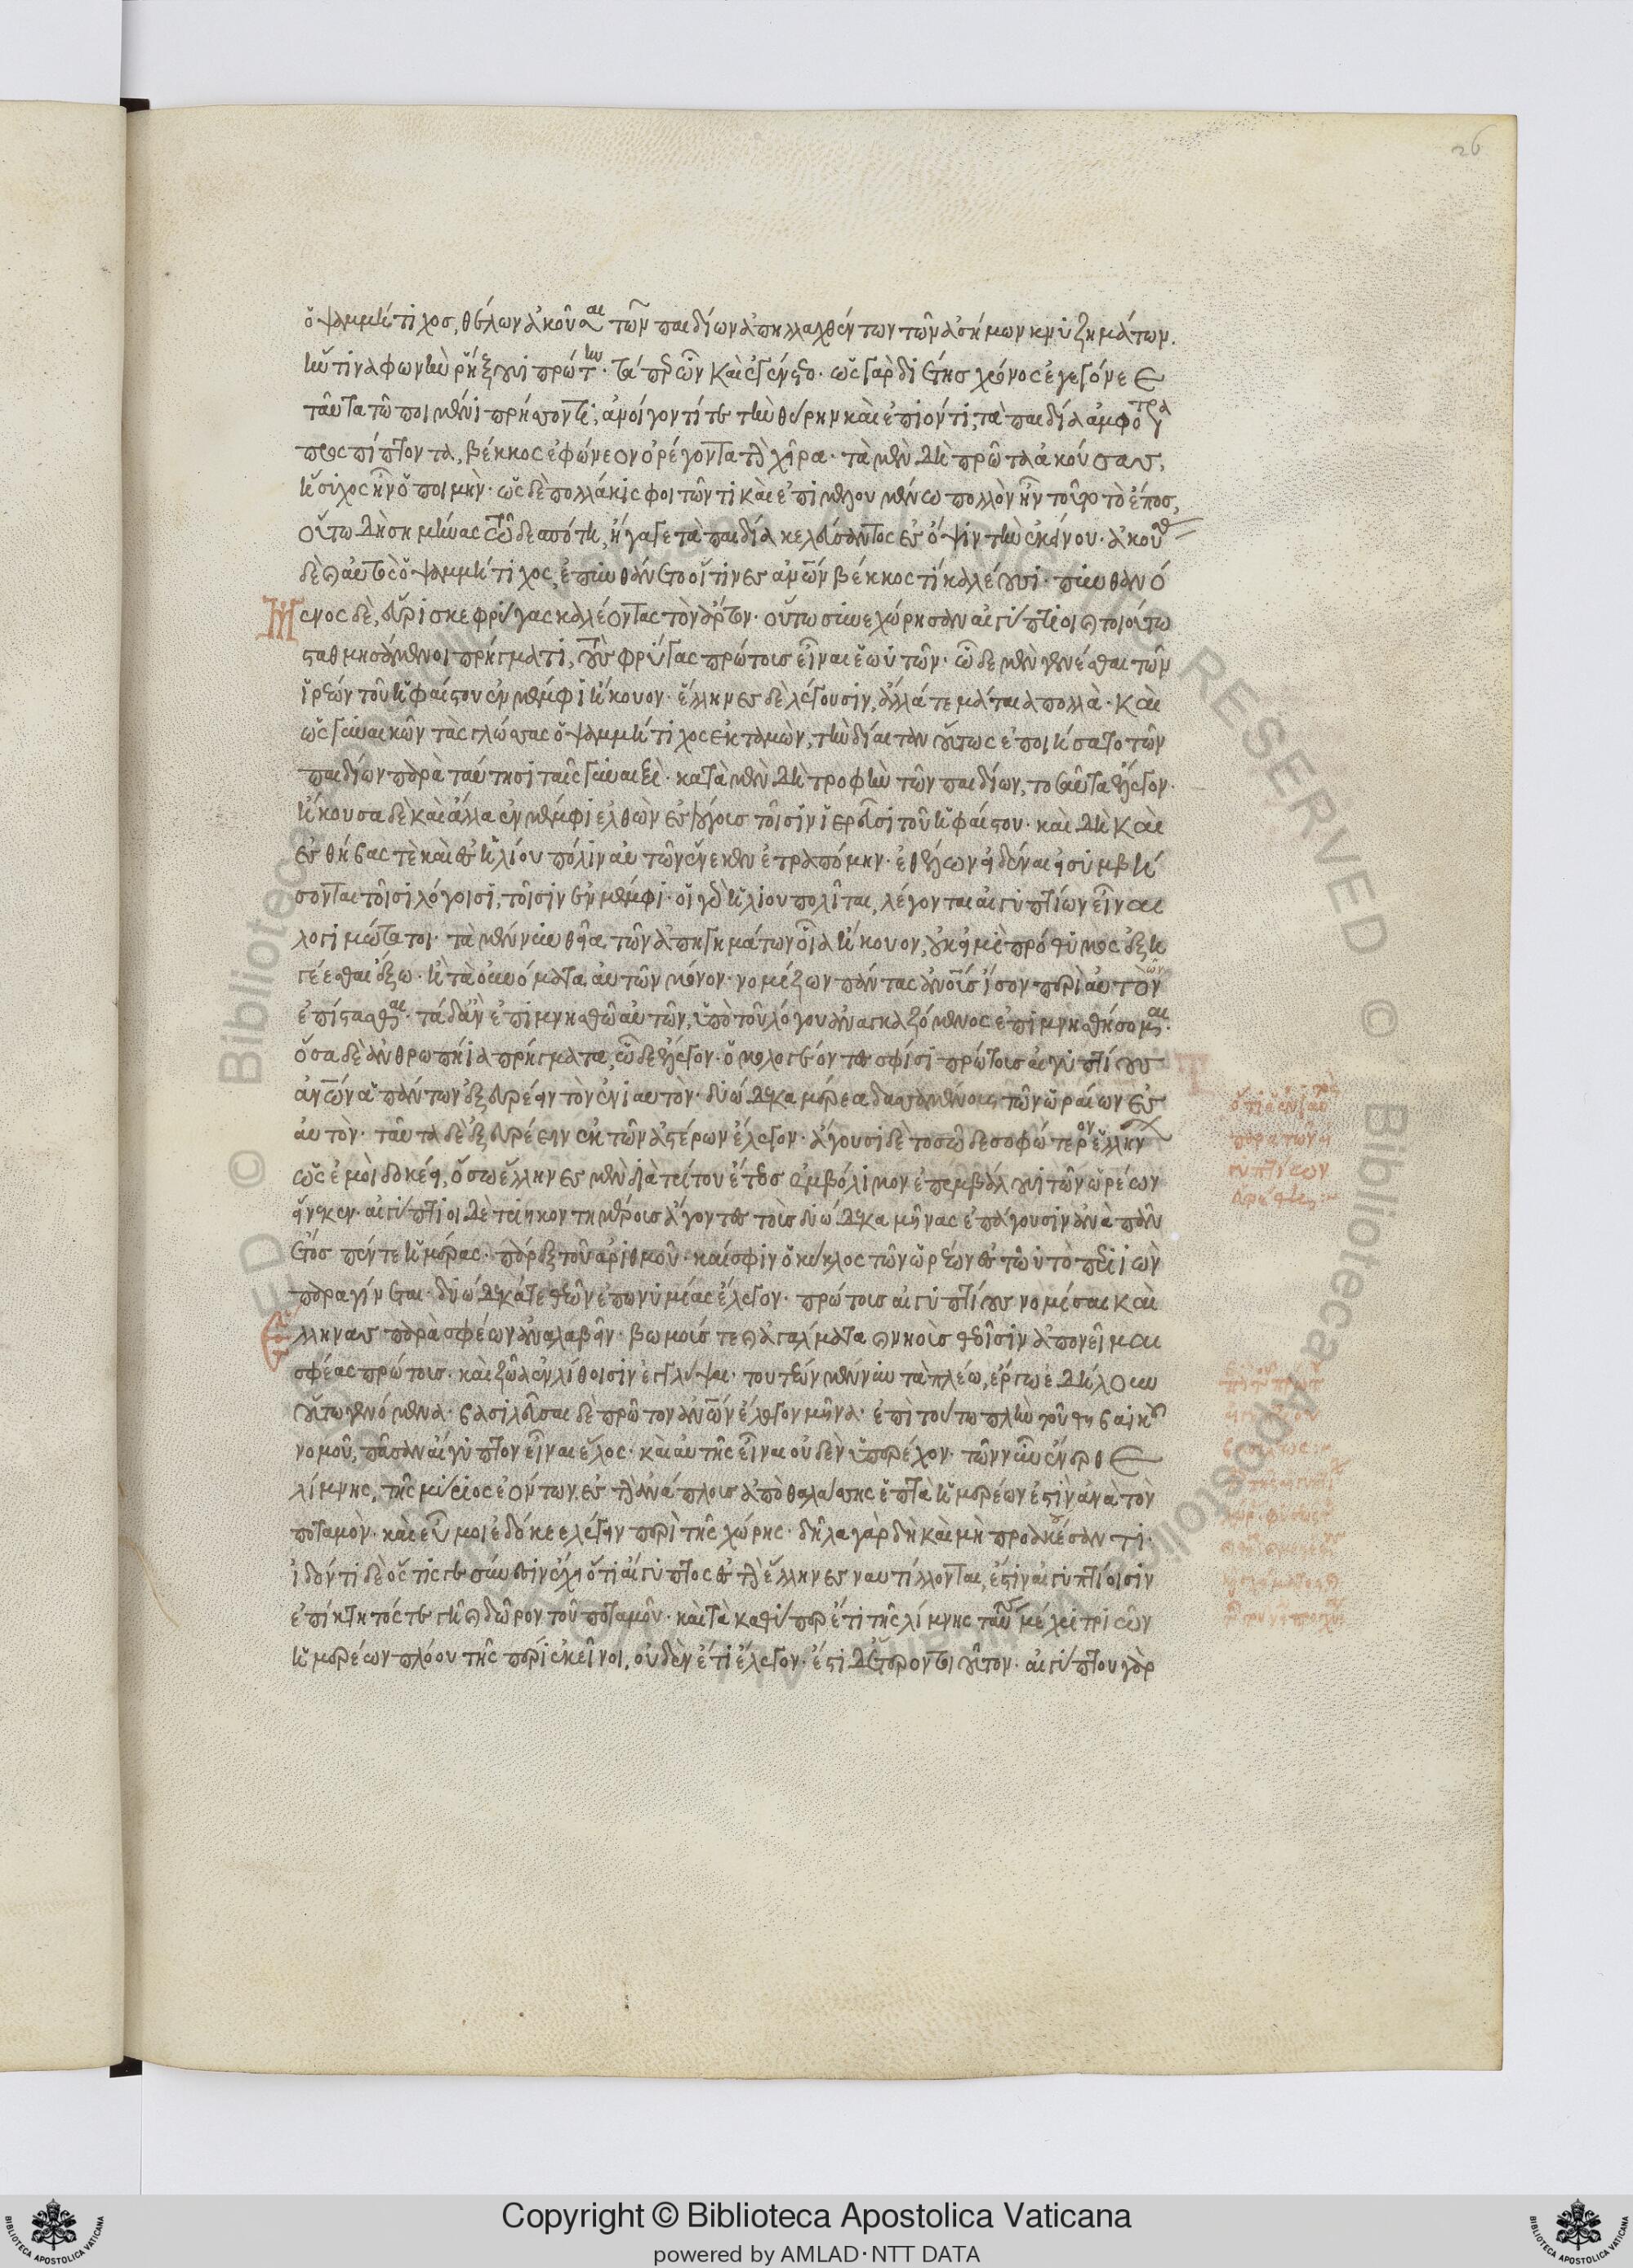 ὁ ψαμμήτιχος, θέλων ἀκοῦσαι τῶν παιδίων ἀπηλλαχθέντων τῶν ἀσήμων κνυζημάτων.
ἥντινα φωνὴν ῥήξουσι πρώτην. τά περ ὦν καὶ ἐγένετο. ὡς γὰρ διέτης χρόνος ἐγεγόνεε
ταῦτα τῶ ποιμένι πρήσσοντι, ἀνοίγοντί τε τὴν θύρην καὶ ἐπιόντι, τὰ παιδία ἀμφότερα
προσπίπτοντα, βέκκος ἐφώνεον ὀρέγοντα τὰς χεῖρας. τὰ μὲν δὴ πρῶτα ἀκούσας,
ἥσυχος ἦν ὁ ποιμήν. ὡς δὲ πολλάκις φοιτῶντι καὶ ἐπιμελομένω πολλὸν ἦν τοῦτο τὸ ἔπος,
οὕτω δὴ σημήνας τῶ δεσπότη, ἤγαγε τὰ παιδία κελεύσαντος ἐς ὄψιν τὴν ἐκείνου. ἀκούσας
δὲ καὶ αὐτὸς ὁ ψαμμήτιχος, ἐπυνθάνετο οἵτινες ἀνθρώπων βέκκος τι καλέουσι. πυνθανό
μενος δὲ, εὕρισκε φρύγας καλέοντας τὸν ἄρτον. οὕτω συνεχώρησαν αἰγύπτιοι καὶ τοιούτω
σταθμησάμενοι πρήγματι, τοὺς φρύγας πρώτους εἶναι ἑωυτῶν. ὧδε μὲν γενέσθαι τῶν
ἱρέων τοῦ ἡφαίστου ἐν μέμφι ἤκουον. ἕλληνες δὲ λέγουσιν, ἄλλα τε μάταια πολλὰ. καὶ
ὡς γυναικῶν τὰς γλώσσας ὁ ψαμμήτιχος ἐκταμὼν, τὴν δίαιταν οὕτως ἐποιήσατο τῶν
παιδίων παρὰ ταύτησι ταῖς γυναιξὶ. κατὰ μὲν δὴ τροφὴν τῶν παιδίων, τοσαῦτα ἔλεγον.
ἤκουσα δὲ καὶ ἄλλα ἐν μέμφι ἐλθὼν ἐς λόγους τοῖσιν ἱερεῦσι τοῦ ἡφαίστου. καὶ δὴ καὶ
ἐς θήβας τὲ καὶ ἐς ἡλίου πόλιν αὐτῶν εἵνεκεν ἐτραπόμην. ἐθέλων εἰδέναι εἰ συμβή
σονται τοῖσι λόγοισι, τοῖσιν ἐν μέμφι. οἱ γὰρ ἡλιουπολῖται, λέγονται αἰγυπτίων εἶναι
λογιμώτατοι. τὰ μέν νυν θεῖα τῶν ἀπηγημάτων οἷα ἤκουον, οὐκ εἰμὶ πρόθυμος ἐξη
γέεσθαι ἔξω. ἢ τὰ οὐνόματα αὐτῶν μόνον. νομίζων πάντας ἀνθρώπους ἴσον περὶ αὐτῶν
ἐπίστασθαι. τὰ δ᾽ ἂν ἐπιμνησθῶ αὐτῶν, ὑπὸ τοῦ λόγου ἀναγκαζόμενος ἐπιμνησθήσομαι.
ὅσα δὲ ἀνθρωπήια πρήγματα, ὧδε ἔλεγον. ὁμολογέοντες σφίσι πρώτους αἰγυπτίους
ἀνθρώπων ἁπάντων ἐξευρέειν τὸν ἐνιαυτὸν. δυώδεκα μέρεα δασαμένους τῶν ὡραίων ἐς
αὐτὸν. ταῦτα δὲ ἐξευρέειν ἐκ τῶν ἀστέρων ἔλεγον. ἄγουσι δὲ τοσῶδε σοφώτερον ἑλλήνων
ὡς ἐμοὶ δοκέει, ὅσω ἕλληνες μὲν διὰ τρίτου ἔτεος ἐμβόλιμον ἐπεμβάλλουσι τῶν ὡρέων
εἵνεκεν. αἰγύπτιοι δὲ τριηκοντημέρους ἄγοντες τοὺς δυώδεκα μῆνας ἐπάγουσιν ἀνὰ πᾶν
ἔτος πέντε ἡμέρας. πάρεξ τοῦ ἀριθμοῦ. καί σφιν ὁ κύκλος τῶν ὡρέων ἐς τὠυτὸ περιιὼν
παραγίνεται. δυώδεκά τε θεῶν ἐπωνυμίας ἔλεγον. πρώτους αἰγυπτίους νομίσαι καὶ
ἕλληνας παρὰ σφέων ἀναλαβεῖν. βωμούς τε καὶ ἀγάλματα καὶ νηοὺς θεοῖσιν ἀπονεῖμαι
σφέας πρώτους. καὶ ζῶα ἐν λίθοισιν ἐγγλύψαι. τουτέων μέν νυν τὰ πλέω, ἔργω ἐδήλουν
οὕτω γενόμενα. βασιλεῦσαι δὲ πρῶτον ἀνθρώπων ἔλεγον μῆνα. ἐπὶ τούτω πλὴν τοῦ θηβαικοῦ
νομοῦ, πᾶσαν αἴγυπτον εἶναι ἕλος. καὶ αὐτῆς εἶναι οὐδὲν ὑπερέχον τῶν νῦν ἔνερθε
λίμνης, τῆς μύριος ἐόντων. ἐς τὴν ἀνάπλους ἀπὸ θαλάσσης ἑπτὰ ἡμερέων ἐστὶν ἀνὰ τὸν
ποταμὸν. καὶ εὖ μοι ἐδόκεε λέγειν περὶ τῆς χώρης. δῆλα γὰρ δὴ καὶ μὴ προακούσαντι.
ἰδόντι δὲ ὅστις γε σύνεσιν ἔχει ὅτι αἴγυπτος ἐς τὴν ἕλληνες ναυτίλλονται, ἐστὶν αἰγυπτίοισιν
ἐπίκτητός τε γῆ καὶ δῶρον τοῦ ποταμοῦ. καὶ τὰ κατύπερ ἔτι τῆς λίμνης ταύτης μέχρι τριῶν
ἡμερέων πλόου τῆς πέρι ἐκεῖνοι, οὐδὲν ἔτι ἔλεγον. ἔστι δὲ ἕτερον τοιοῦτον. αἰγύπτου γὰρ
26
Copyright © Biblioteca Apostolica Vaticana
powered by AMLAD·NTT DATA